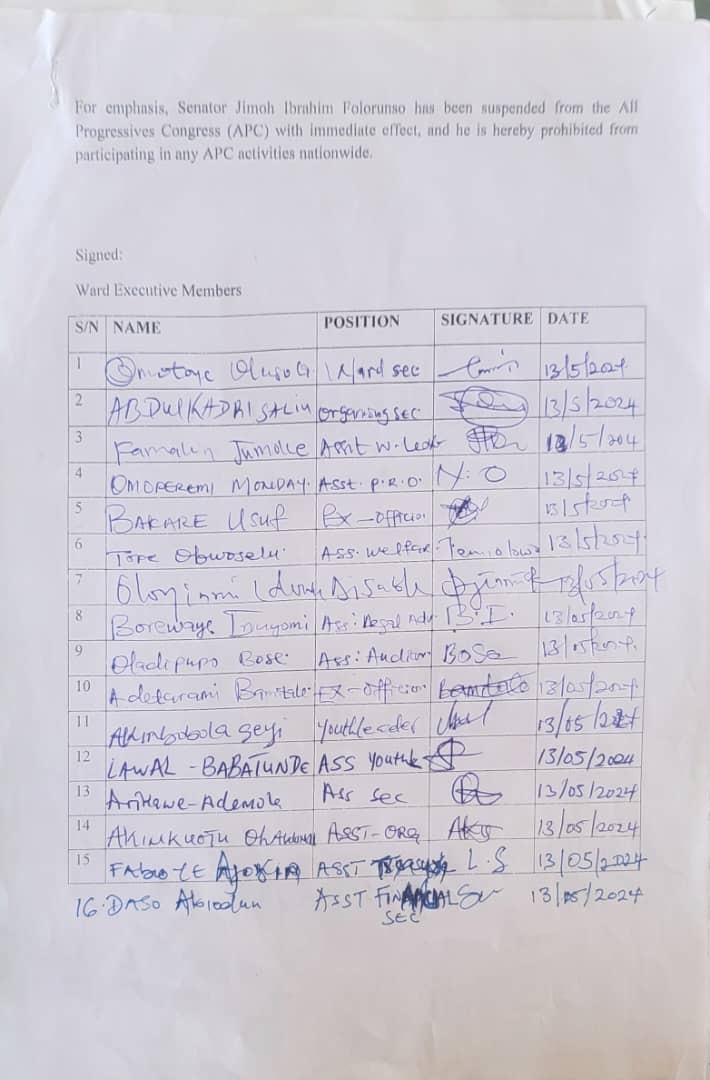 For emphasis, Senator Jimoh Ibrahim Folorunso has been suspended from the All
Progressives Congress (APC) with immediate effect, and he is hereby prohibited from
participating in any APC activities nationwide.
Signed:
Ward Executive Members
S/N NAME POSITION SIGNATURE DATE
1 Omotoye Olusola Ward sec 13/5/2024
2 ABDULKADRI SALIU organising SEC 13/5/2024
3 Jumoke Asst W. Leader /5/204
4 OMOPEREMI MONDAY. Asst. P.R.O. N.O 13/5/2024
5 BAKARE Usuf Ex-officio 13/5/2024
6 TOPE Ass. welfare 13/5/2024
7 13/05/2024
8 Ass: Legal Adv B.I. 13/05/2024
9 Oladipupo Bose. Ass: Auditor BOSE 13/05/2024
10 Adefarami Bamitale Ex-officio Bamitale 13/05/2024
11 Akinbobola Seyi Youth leader 13/05/2024
12 LAWAL - BABATUNDE ASS Youth 13/05/2024
13 Arikawe-Ademola Ass sec 13/05/2024
14 ASST-ORG 13/05/2024
15 ASST L.S 13/05/2024
16. DASO Abiodun ASST FINANCIAL 13/05/2024
SEC